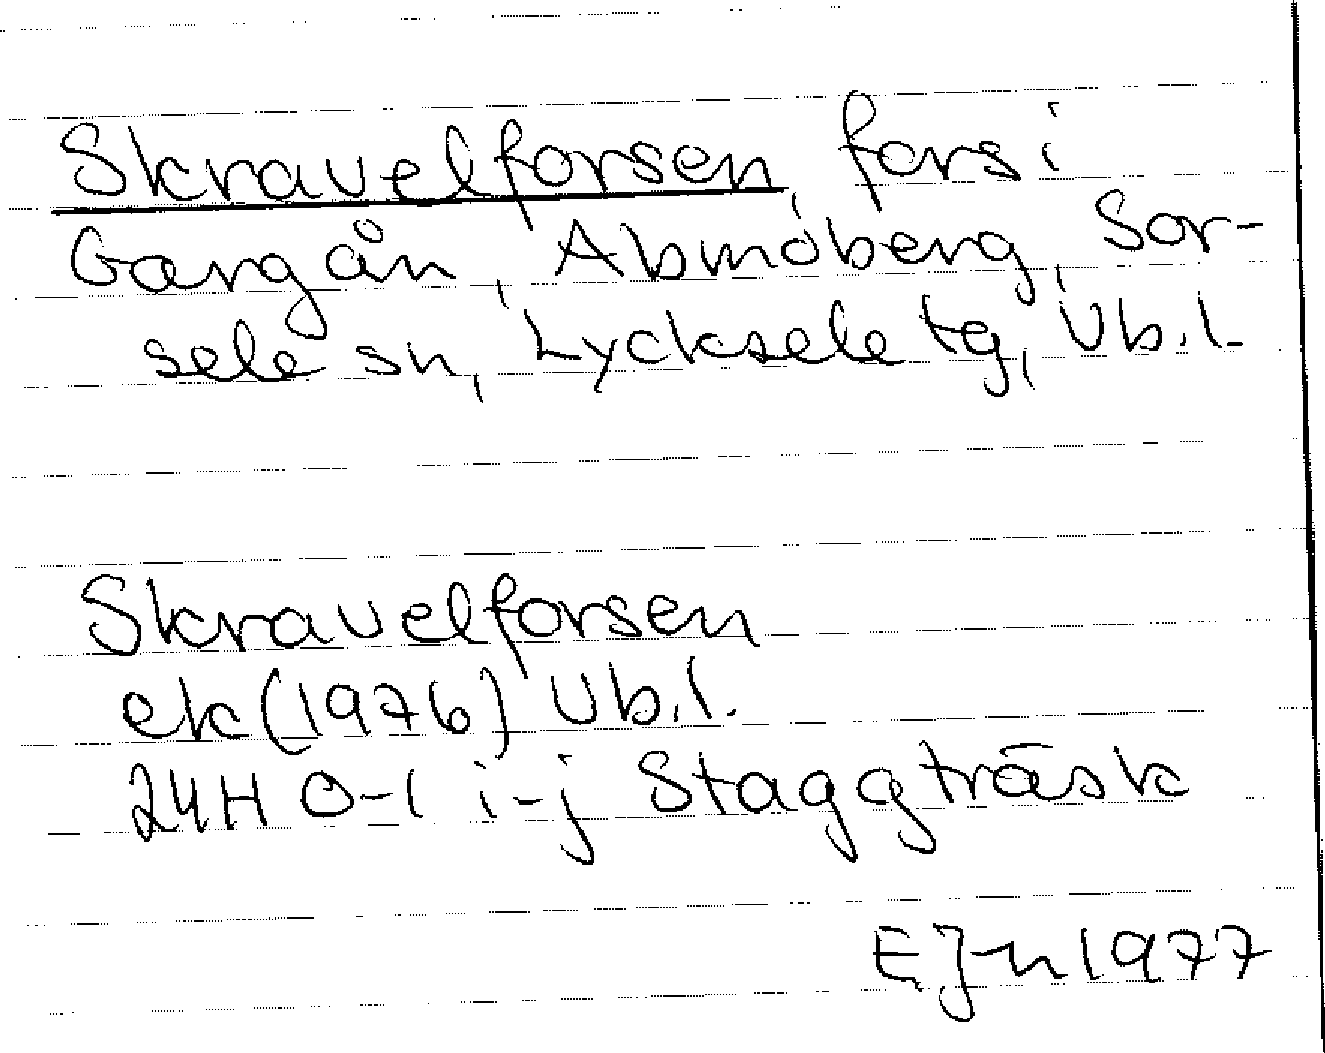 Skravelforsen, fors i
Gargån, Abmoberg, Sor-
sele sn, Lycksele tg, Vb.l.
Skravelforsen
ek (1976) Vb.l.
24H 0-1 i-j Staggträsk
EJn 1977